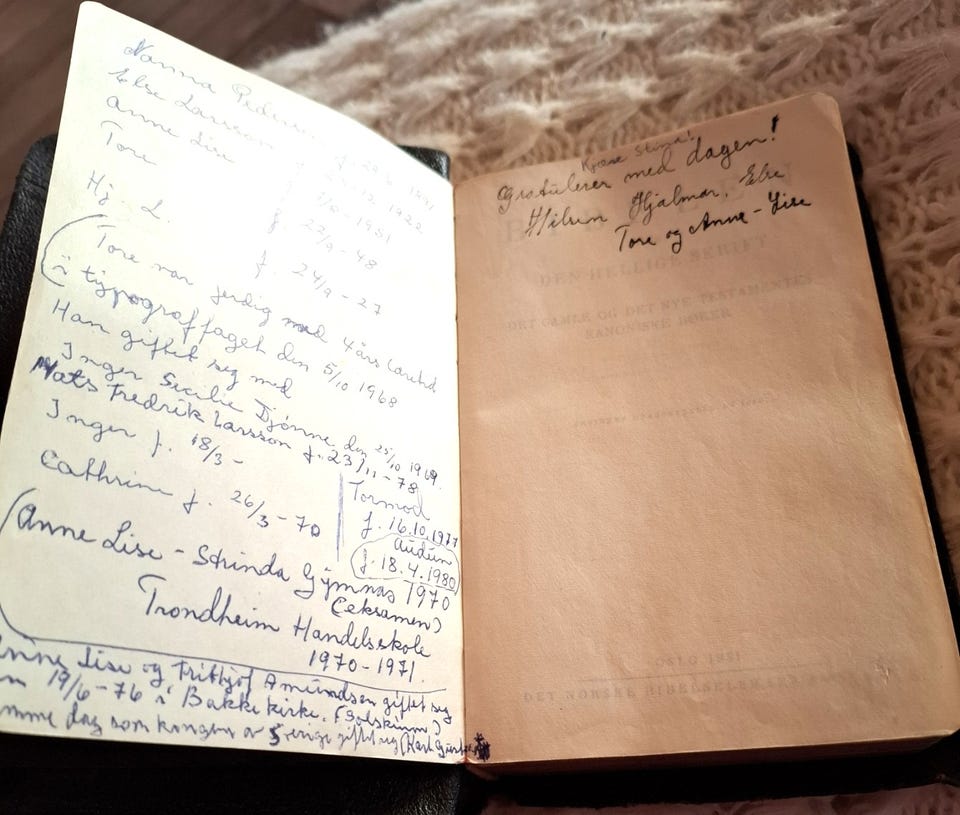 Nanna Pedersen f.
Else Larsson f.
Anne Lise
Tore f. 22/9 - 48
Hj. L. f. 24/9 - 27
Tore var ferdig med 4 års læretid
i typograffaget den 5/10 1968
Han giftet seg med
Inger Secilie Djønne den 25/10 1969.
Mats Fredrik Larsson f. 23/11 - 78
Inger f. 18/3 -
Cathrine f. 26/3 - 70
Tormod
f. 16.10.1977
Audun
f. 18.4.1980
Anne Lise - Strinda Gymnas 1970
(eksamen)
Trondheim Handelsskole
1970 - 1971.
Anne Lise og Frithjof Amundsen giftet seg
19/6 - 76 i Bakke kirke. (Solskinn)
dag som kongen av Sverige giftet seg (Karl
Kjære Stina!
Gratulerer med dagen!
Hilsen Hjalmar, Else
Tore og Anne-Lise
BIBELEN
DEN HELLIGE SKRIFT
DET GAMLE OG DET NYE TESTAMENTES
KANONISKE BØKER
OSLO 1951
DET NORSKE BIBELSELSKAPS